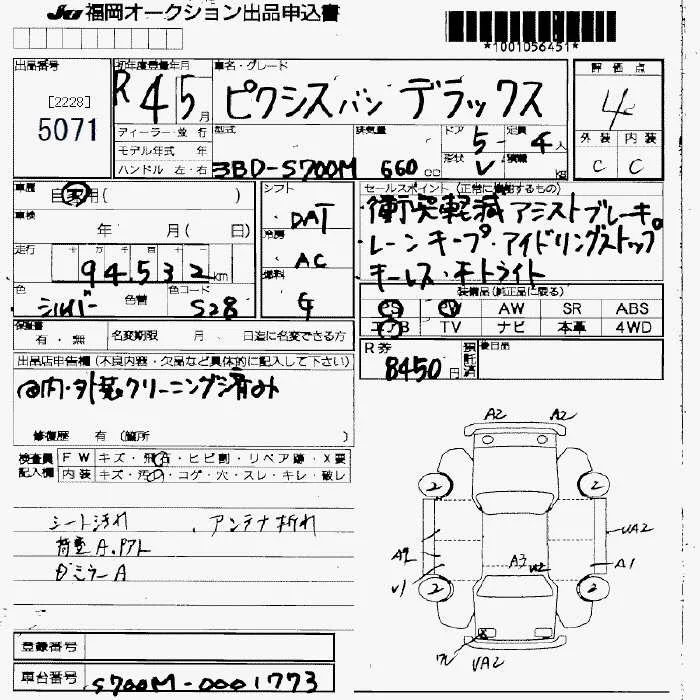 JU 福岡オークション出品申込書
*1001056451*
出品番号
[2228]
5071
初年度登録年月
R 4 5月
ディーラー・並行
モデル年式 年
ハンドル 左・右
車名・グレード
ピクシスバン デラックス
型式
3BD-S700M
排気量
660cc
ドア 5
定員 4人
形状 V
積載 kg
評価点
4
外装 内装
C C
車歴
自家用( )
車検
年 月( 日)
走行
94,532km
色
シルバー
色替
色コード
S28
シフト
DAT
冷房
AC
燃料
G
セールスポイント(正常に機能するもの)
・衝突軽減アシストブレーキ
・レーンキープ・アイドリングストップ
・キーレス・オートライト
装備品(純正品に限る)
PS PW AW SR ABS
エアB TV ナビ 本革 4WD
保証書
有・無
名変期限 月 日迄に名変できる方
R券
8450円
預託済
後日品
出品店申告欄(不良内容・欠品など具体的に記入して下さい)
@内・外装クリーニング済み
修復歴 有(箇所 )
検査員
記入欄
FW キズ・飛石・ヒビ割・リペア跡・X要
内装 キズ・汚れ・コゲ・穴・スレ・キレ・破レ
シート汚れ アンテナ折れ
荷室A.アトL
ダミラーA
A2 A2
2 2
UA2
A2
A3
UA2
A1
U1
2 2
X
UA2
登録番号
車台番号
S700M-0001773